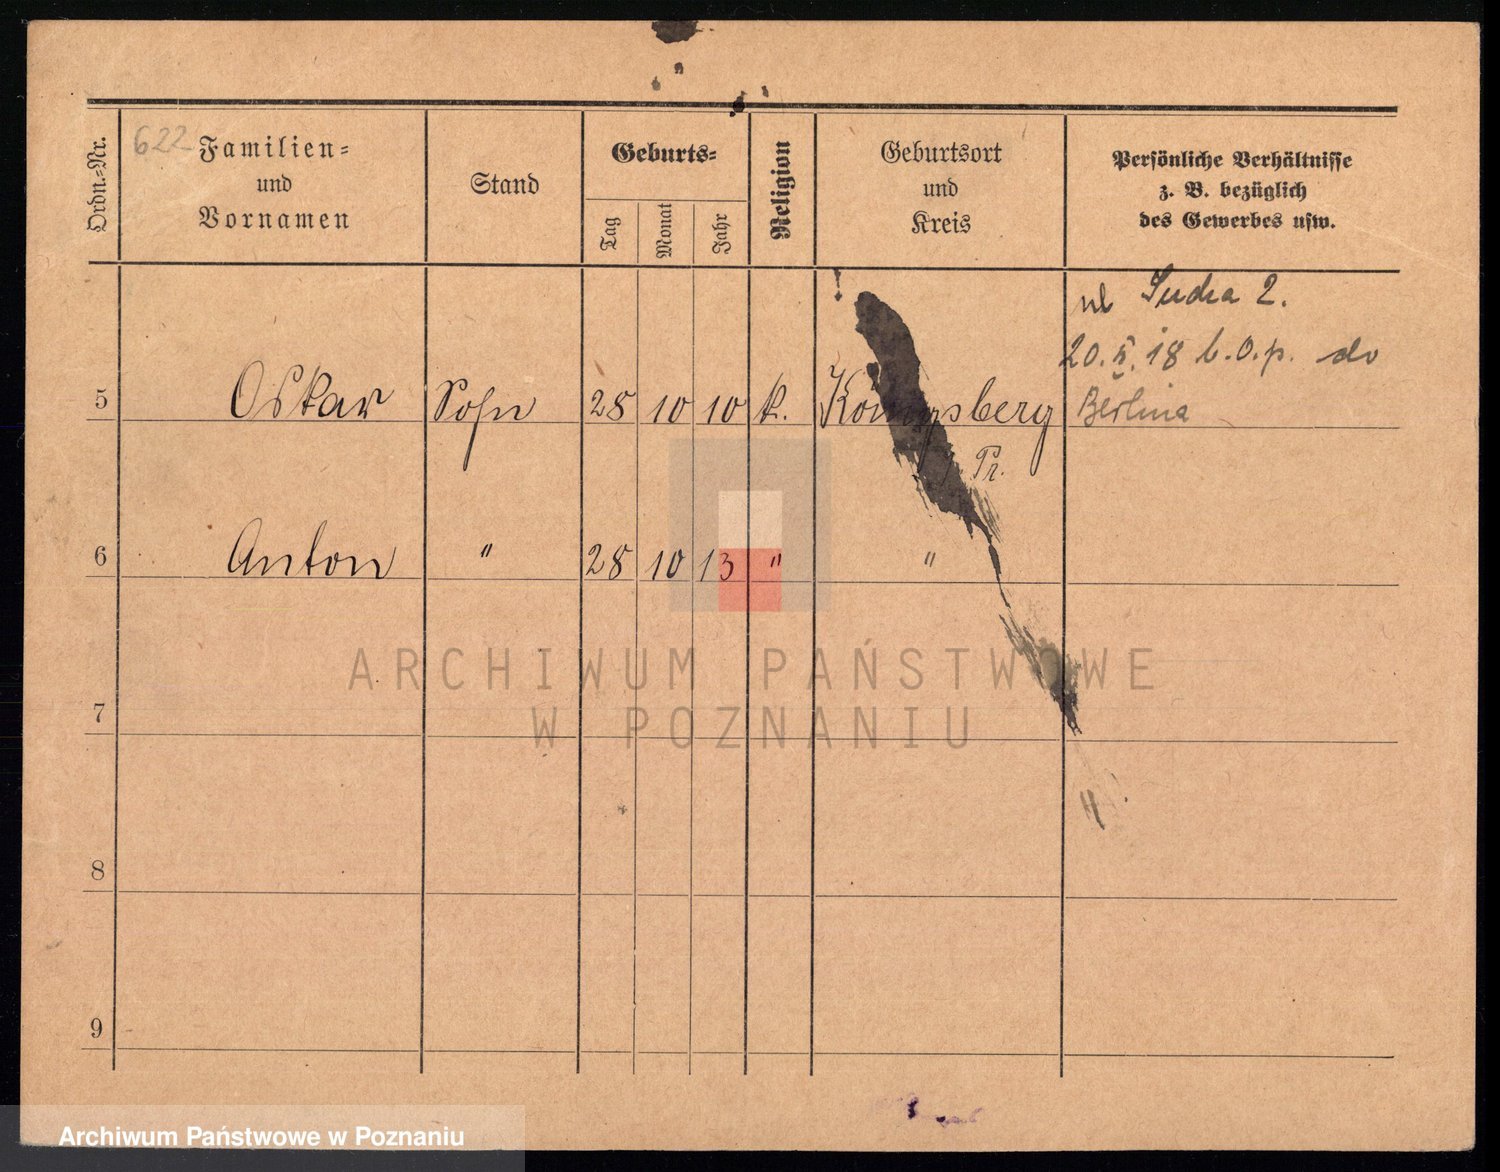 622
Ordn.-Nr.
Familien-
und
Vornamen
Stand
Geburts-
Tag
Monat
Jahr
Religion
Geburtsort
und
Kreis
Persönliche Verhältnisse
z. B. bezüglich
des Gewerbes usw.
ul 2.
20. 18 b.o.p. do
5 Oskar Sohn 28 10 10 k. Königsberg Berlina
Pr.
6 Anton " 28 10 13 " "
ARCHIWUM PAŃSTWOWE
W POZNANIU
7
8
9
Archiwum Państwowe w Poznaniu